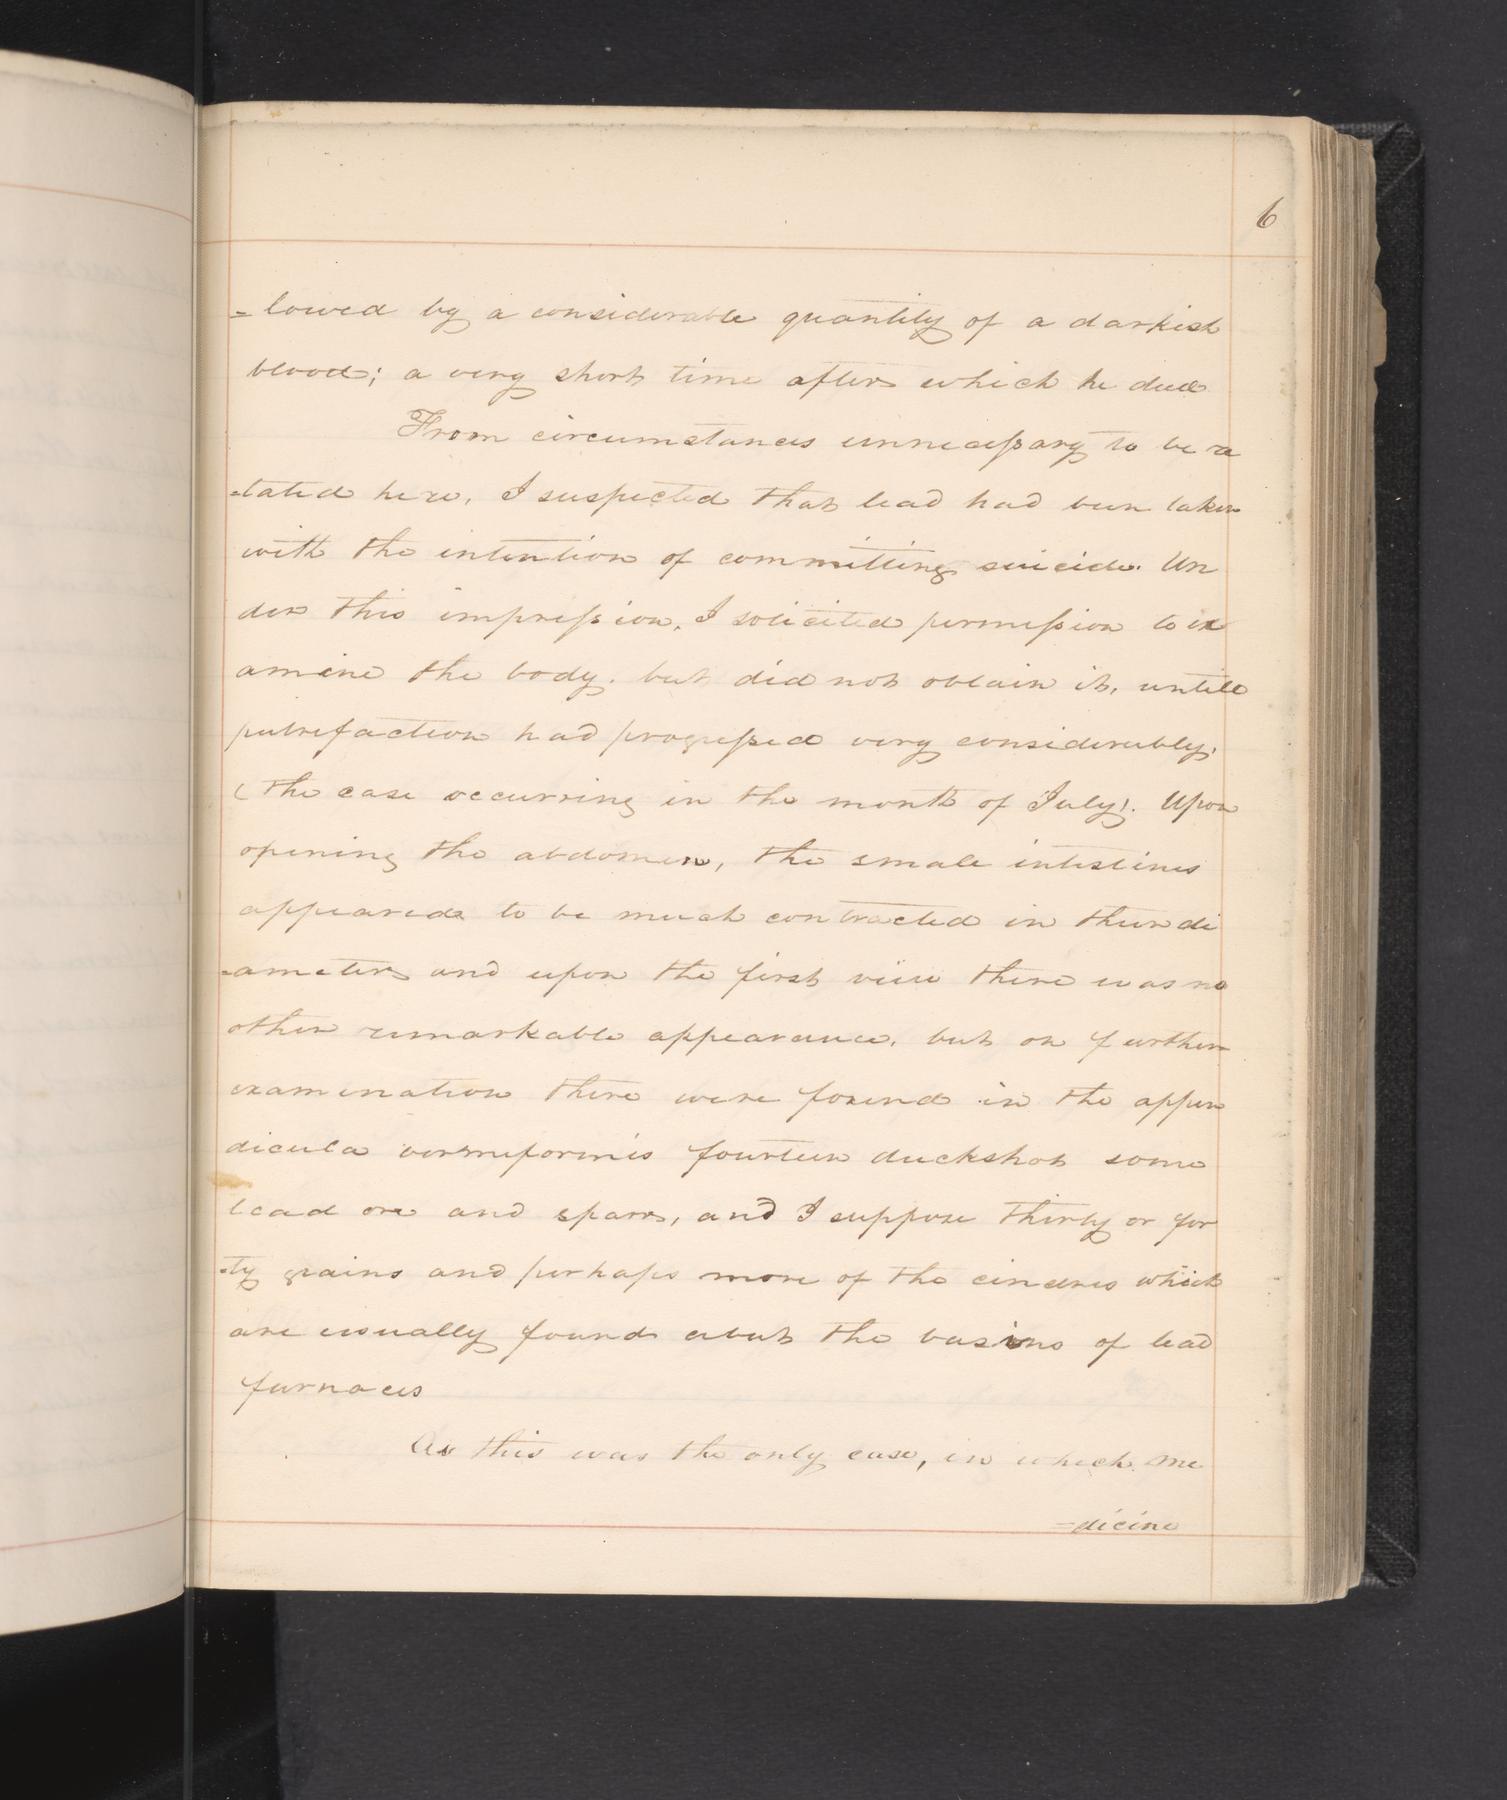 6
=lowed by a considerable quantity of a darkish
blood; a very short time after which he died
From circumstances unnecessary to be re
=lated here, I suspected that lead had been taken
with the intention of committing suicide. Un
der this impression, I solicited permission to ex
amine the body, but did not obtain it, untill
putrefaction had progressed very considerably,
(the case occurring in the month of July). Upon
opening the abdomen, the small intestines
appeared to be much contracted in their di
=ameters and upon the first view there was no
other remarkable appearance, but on further
examination there were found in the appen
dicula vermiformis fourteen duckshot some
lead ore and spars, and I suppose thirty or for
=ty grains and perhaps more of the cinders which
are usually found about the basins of lead
furnaces
As this was the only case, in which me
=dicine